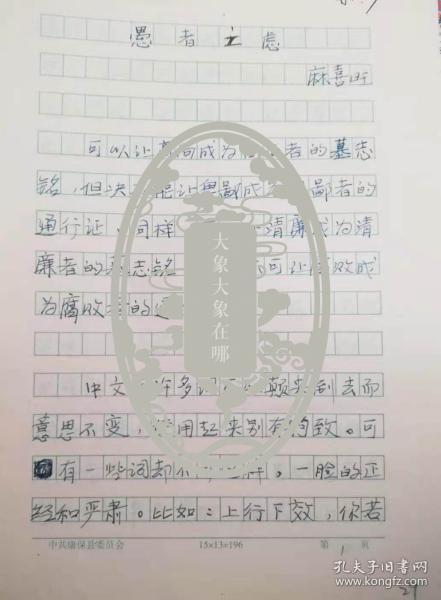 愚者之虑
麻喜旺
可以让高尚成为 者的墓志
铭,但决 让卑鄙成 鄙者的
通行证,同样 清廉成为清
廉者的墓志铭 可让腐败成
为腐败者的通
中文 许多词 颠来倒去而
意思不变, 用起来别有韵致。可
有一些词却不 样。一脸的正
经和严肃。比如:上行下效,你若
中共康保县委员会 15×13=196 第1页
大象大象在哪
孔夫子旧书网
www.kongfz.com